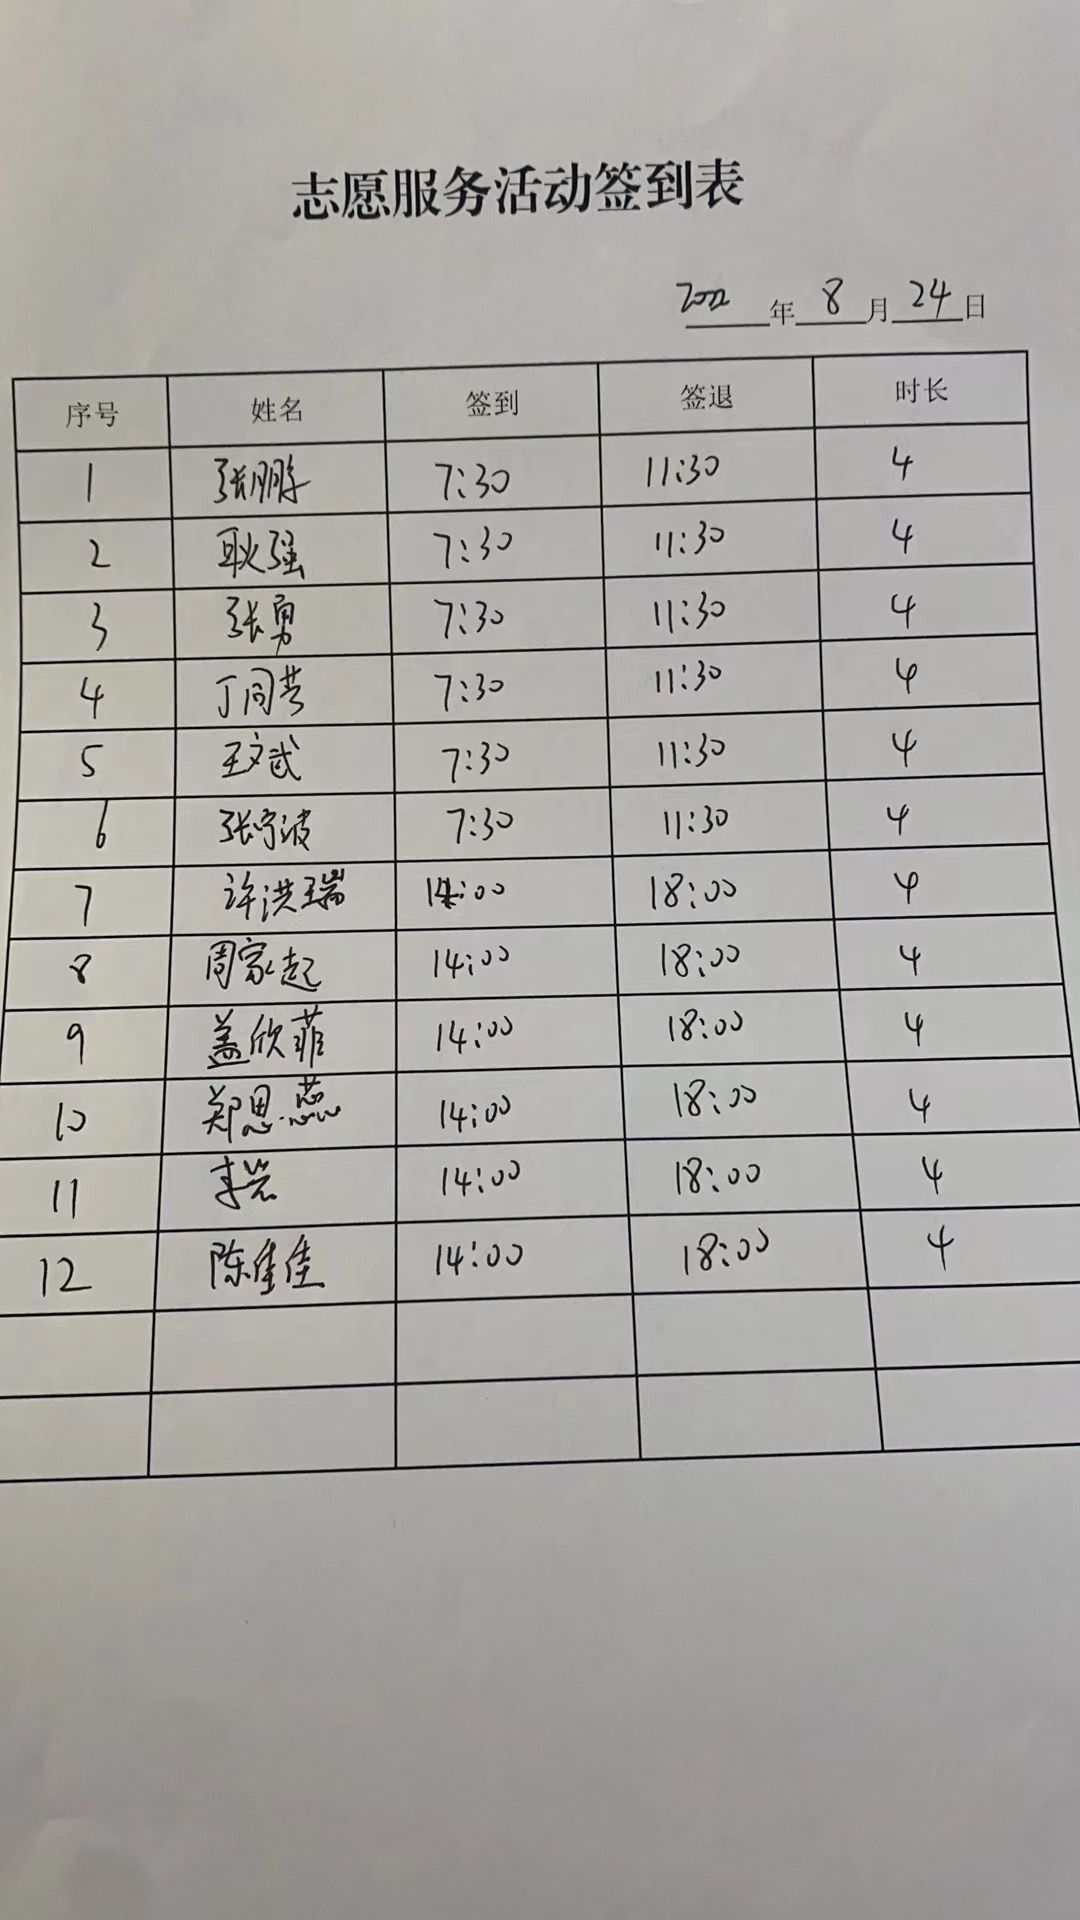 志愿服务活动签到表
2022年8月24日
序号 姓名 签到 签退 时长
1 张鹏 7:30 11:30 4
2 耿强 7:30 11:30 4
3 张勇 7:30 11:30 4
4 丁同芳 7:30 11:30 4
5 王文武 7:30 11:30 4
6 张宁波 7:30 11:30 4
7 许洪瑞 14:00 18:00 4
8 周家起 14:00 18:00 4
9 盖欣菲 14:00 18:00 4
10 郑思蕊 14:00 18:00 4
11 李岩 14:00 18:00 4
12 陈佳佳 14:00 18:00 4